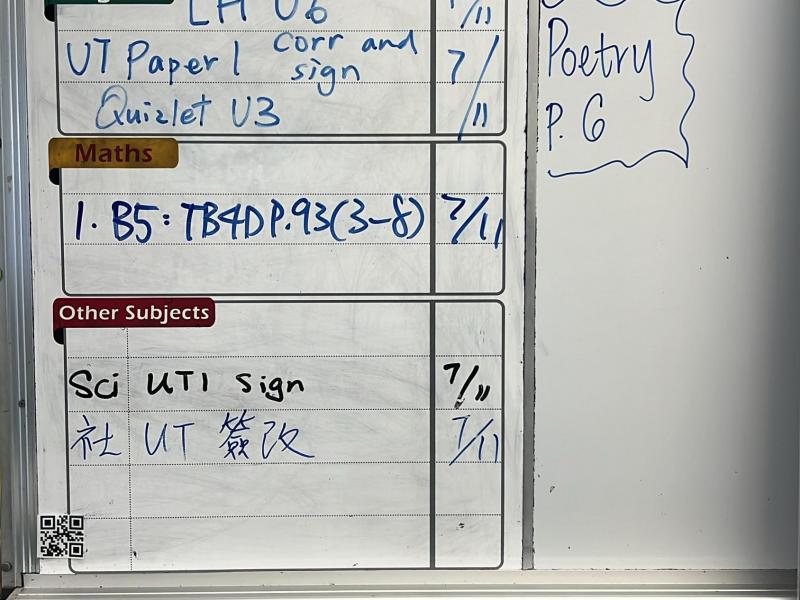 LH U6 7/11
UT Paper 1 corr and sign 7/11
Quizlet U3
Maths
1. B5: TB4D P.93(3-8) 7/11
Other Subjects
Sci UT1 sign 7/11
社 UT 簽改 7/11
Poetry
P. 6